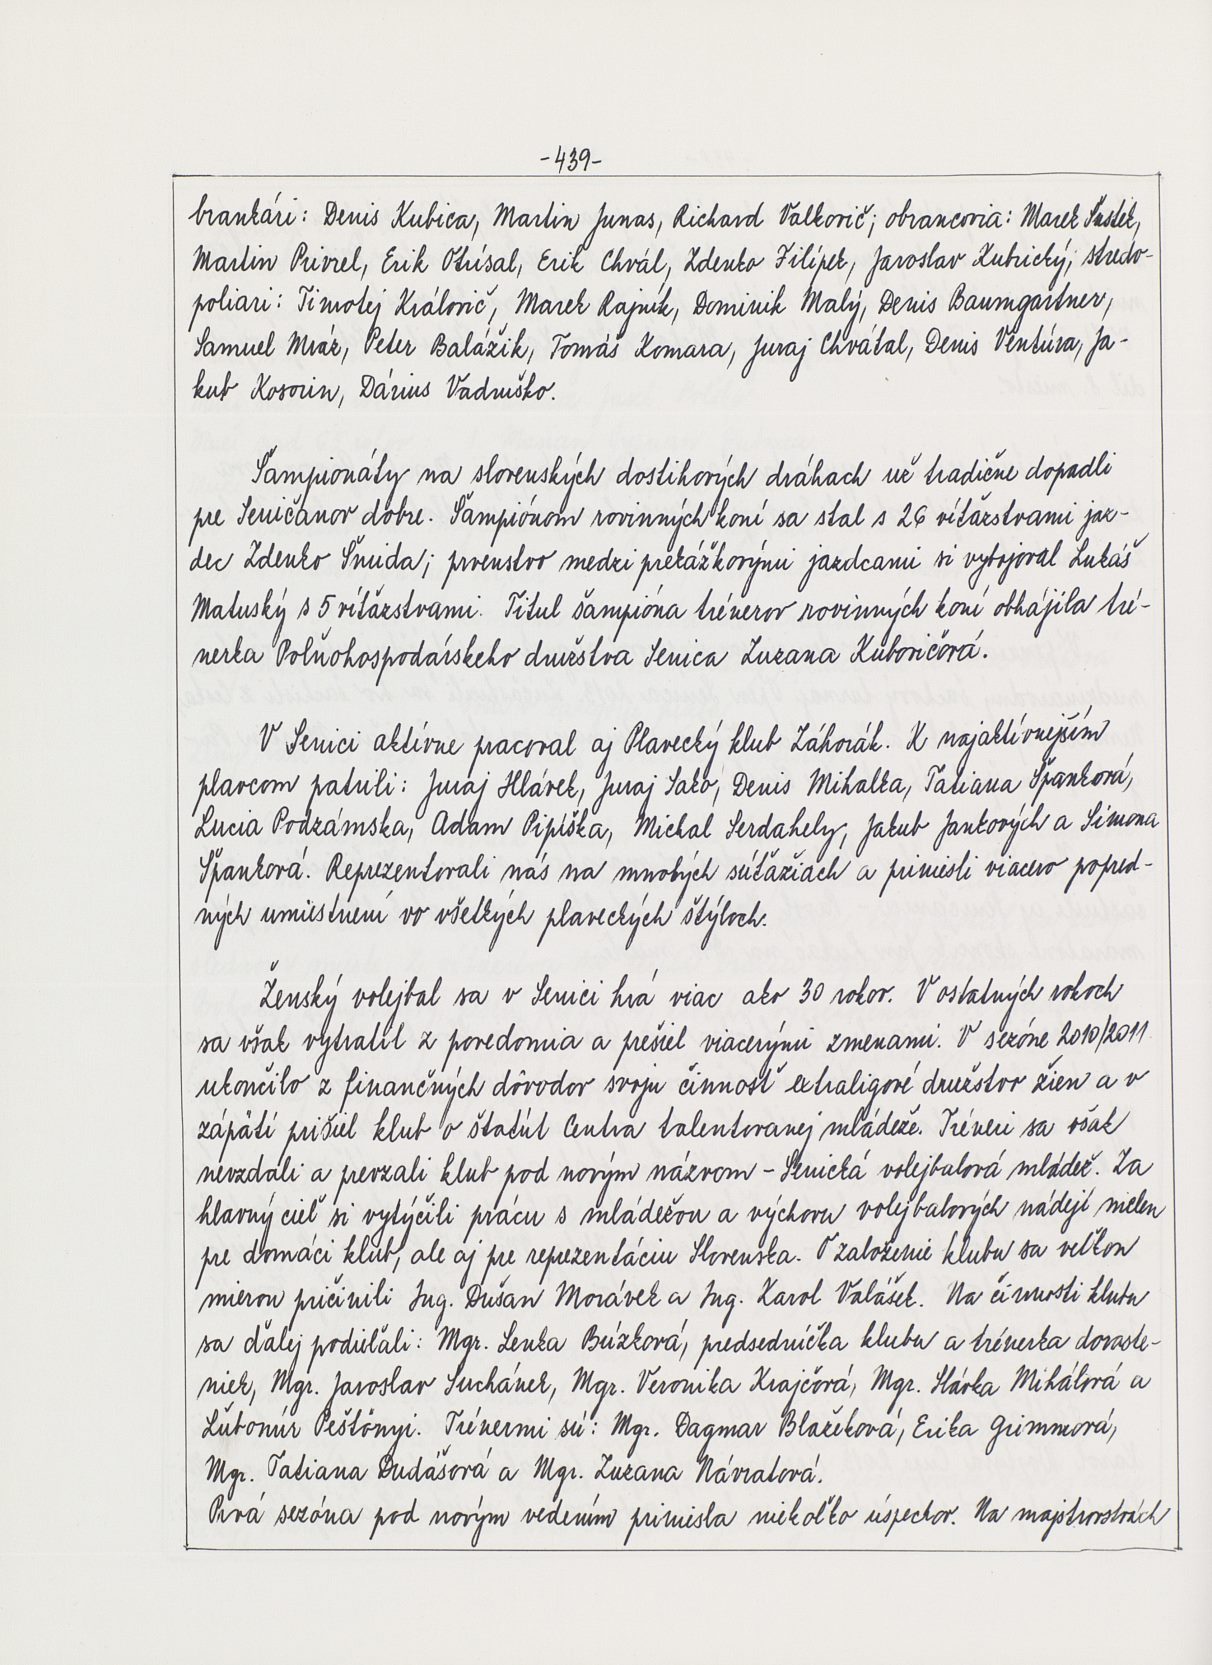 -439-
brankári: Denis Kubica, Martin Junas, Richard Valkovič; obrancovia: Marek Šustek,
Martin Privrel, Erik Otrísal, Erik Chvál, Zdenko Filípek, Jaroslav Kubrický; stredo-
poliari: Timotej Královič, Marek Rajník, Dominik Malý, Denis Baumgartner,
Samuel Mráz, Peter Balážik, Tomáš Komara, Juraj Chvátal, Denis Ventúra, Ja-
kub Kosorin, Dárius Vadruško.
Šampionáty na slovenských dostihových dráhach už tradične dopadli
pre Seničanov dobre. Šampiónom rovinných koní sa stal s 26 víťazstvami jaz-
dec Zdenko Šmida; prvenstvo medzi prekážkovými jazdcami si vybojoval Lukáš
Matuský s 5 víťazstvami. Titul šampióna trénerov rovinných koní obhájila tré-
nerka Poľnohospodárskeho družstva Senica Zuzana Kubovičová.
V Senici aktívne pracoval aj Plavecký klub Záhorák. K najaktívnejším
plavcom patrili: Juraj Hlávek, Juraj Sako, Denis Mihalka, Tatiana Španková,
Lucia Podzámska, Adam Pipíška, Michal Serdahely, Jakub Jankových a Simona
Španková. Reprezentovali nás na mnohých súťažiach a priniesli viacero popred-
ných umiestnení vo všetkých plaveckých štýloch.
Ženský volejbal sa v Senici hrá viac ako 30 rokov. V ostatných rokoch
sa však vytratil z povedomia a prešiel viacerými zmenami. V sezóne 2010/2011
ukončilo z finančných dôvodov svoju činnosť extraligové družstvo žien a v
zápätí prišiel klub o štatút Centra talentovanej mládeže. Tréneri sa však
nevzdali a prevzali klub pod novým názvom - Senická volejbalová mládež. Za
hlavný cieľ si vytýčili prácu s mládežou a výchovu volejbalových nádejí nielen
pre domáci klub, ale aj pre reprezentáciu Slovenska. O založenie klubu sa veľkou
mierou pričinili Ing. Dušan Morávek a Ing. Karol Valášek. Na činnosti klubu
sa ďalej podieľali: Mgr. Lenka Búzková, predsedníčka klubu a trénerka doraste-
niek, Mgr. Jaroslav Suchánek, Mgr. Veronika Krajčová, Mgr. Slávka Mihálová a
Ľubomír Peštönyi. Trénermi sú: Mgr. Dagmar Blažeková, Erika Grimmová,
Mgr. Tatiana Dudášová a Mgr. Zuzana Návratová.
Prvá sezóna pod novým vedením priniesla niekoľko úspechov. Na majstrovstvách